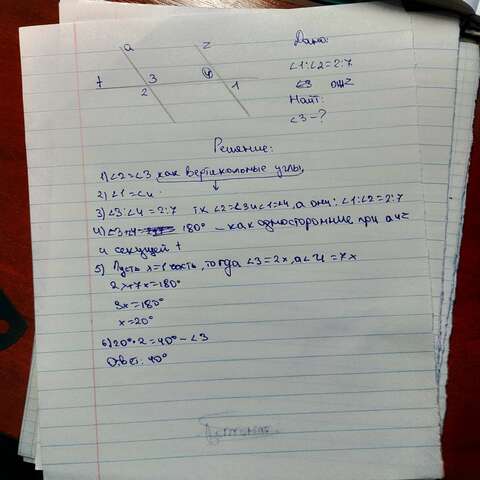 a z
t 3 4
2 1
Дано:
∠1:∠2=2:7
∠3 a||z
Найт:
∠3-?
Решение:
1) ∠2=∠3 как вертикальные углы,
2) ∠1=∠4.
3) ∠3:∠4=2:7 тк ∠2=∠3 и ∠1=∠4, а они: ∠1:∠2=2:7
4) ∠3+4= 180° - как односторонние при a и z
и секущей t
5) Пусть x=1 часть, тогда ∠3=2x, а ∠4=7x
2x+7x=180°
9x=180°
x=20°
6) 20°·2=40°-∠3
Ответ: 40°